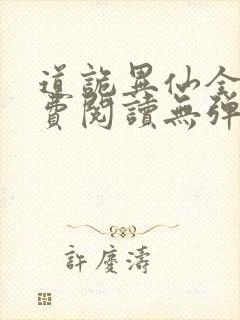 道詭異仙全
費閱讀無彈
許慶濤